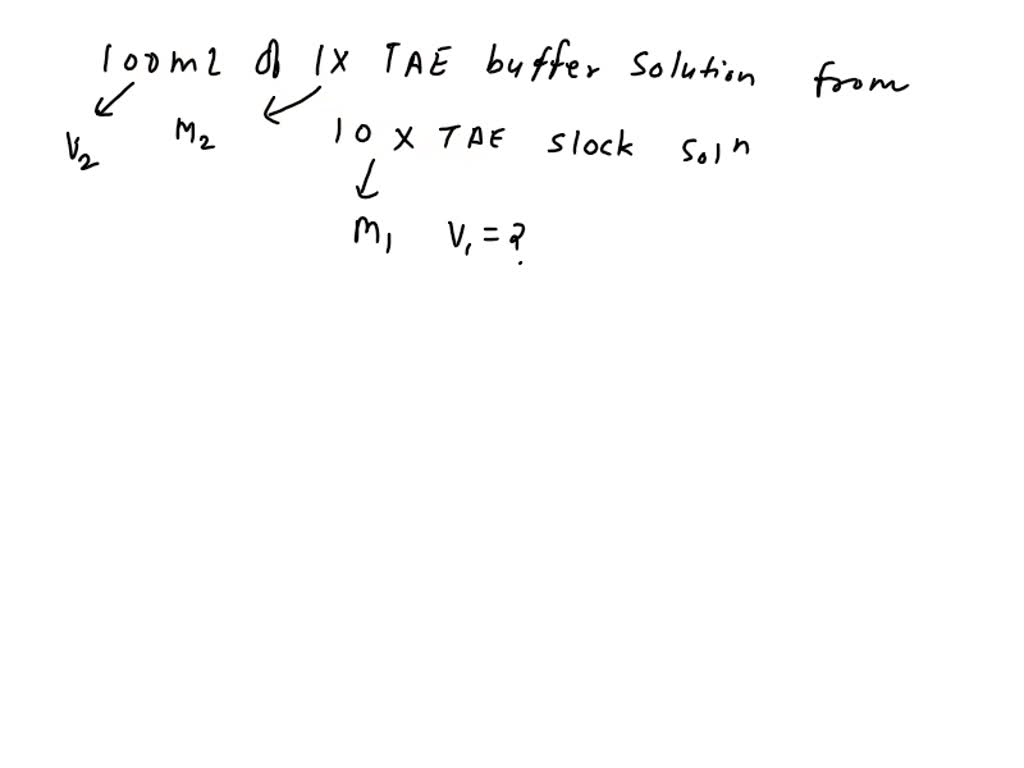 100ml of 1X TAE buffer solution from
V2 M2 10 X TAE stock soln
M1 V1 = ?